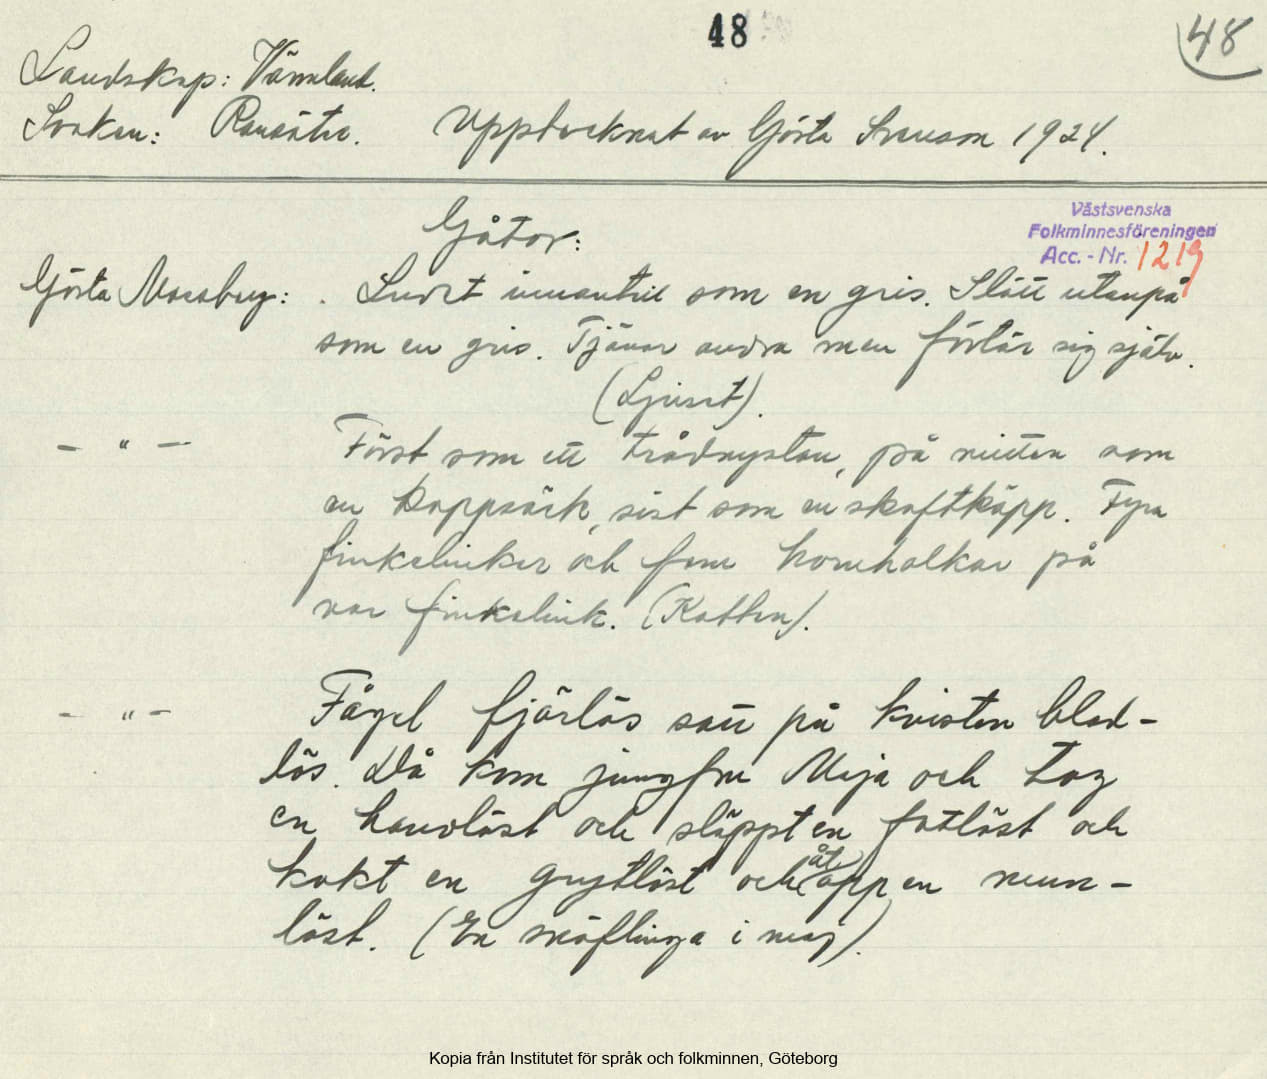 48
48
Landskap: Värmland.
Socken: Ransäter. Upptecknat av Gösta Svenson 1924.
Västsvenska
Folkminnesföreningen
Acc. - Nr. 1219
Gåtor:
Gösta Mossberg: . Ludet innantill som en gris. Slätt utanpå
som en gris. Tjänar andra men förtär sig själv.
(Ljuset).
— " — Först som ett trådnystan, på mitten som
en kappsäck, sist som en skaftkäpp. Fyra
finkelinker och fem hornhalkar på
var finkelink. (Katten).
— " — Fågel fjärlös satt på kvisten blad-
lös. Då kom jungfru Meja och tog
en handlöst och släppt en fotlöst och
kokt en grytlöst och åt upp en munn-
löst. (En snöflinga i maj).
Kopia från Institutet för språk och folkminnen, Göteborg